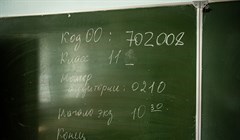 Код ОО : 702008
Класс 11
Номер
аудитории: 0210
Начало экз. 10 30
Конец